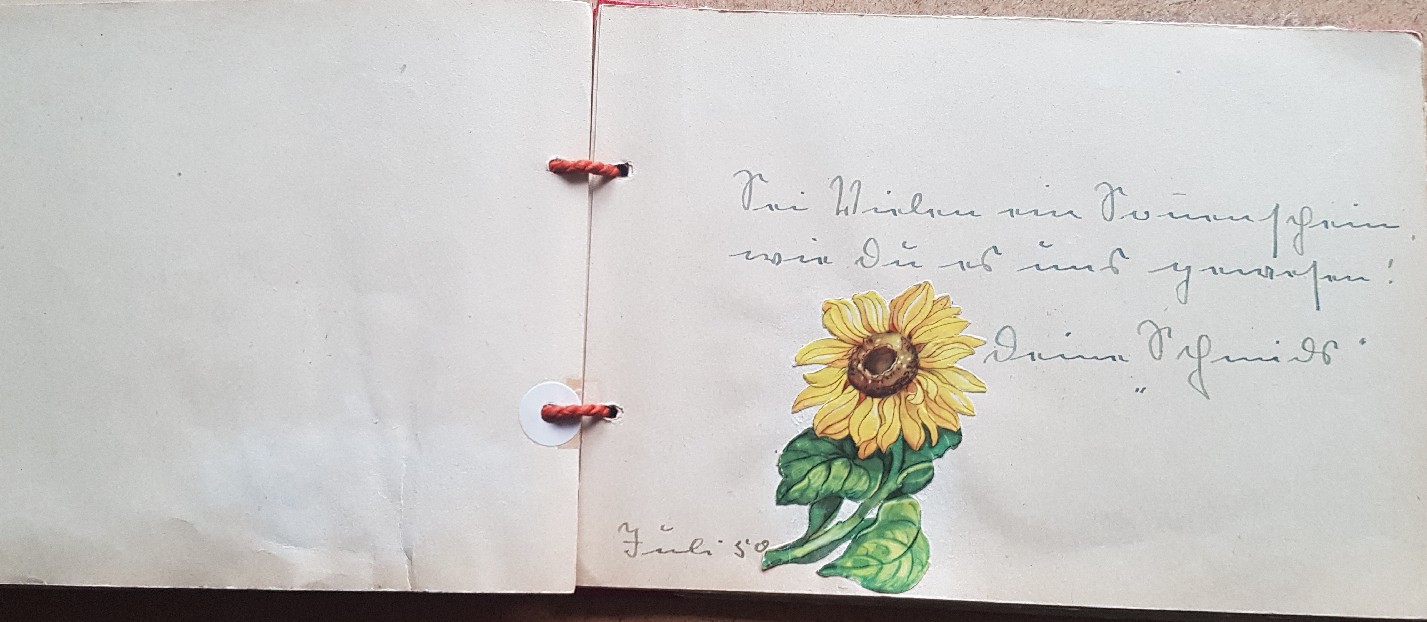 Sei Vielen ein Sonnenschein,
wie Du es uns gewesen!
Deine Schmids'
Juli 50